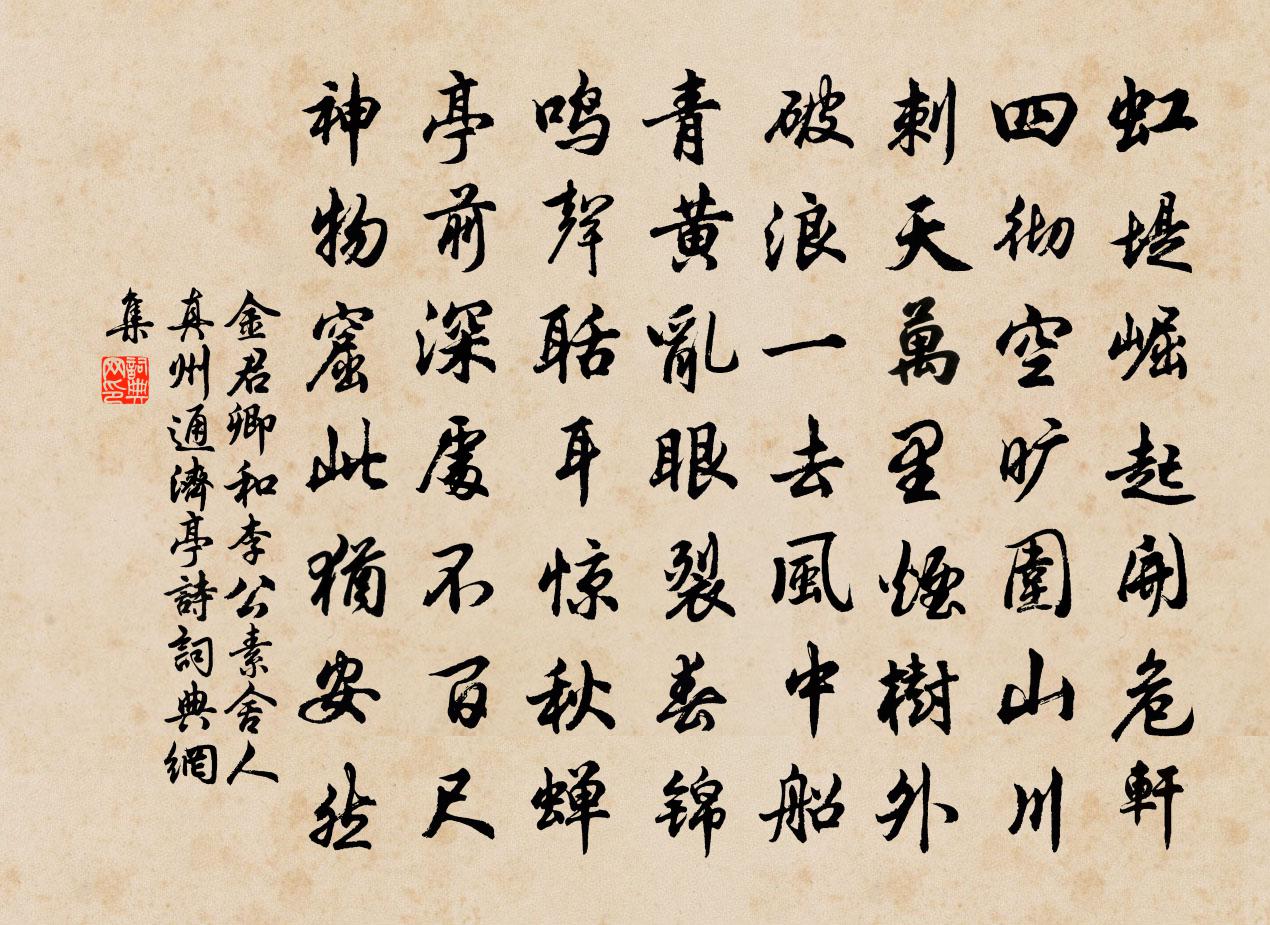 虹堤崛起開危軒
四彻空旷圍山川
刺天萬里煙樹外
破浪一去風中船
青黄亂眼裂春錦
鳴聲聒耳惊秋蝉
亭前深處不百尺
神物窟此猶安然
金君卿和李公素舍人
真州通濟亭詩詞典網
集
詞典网印